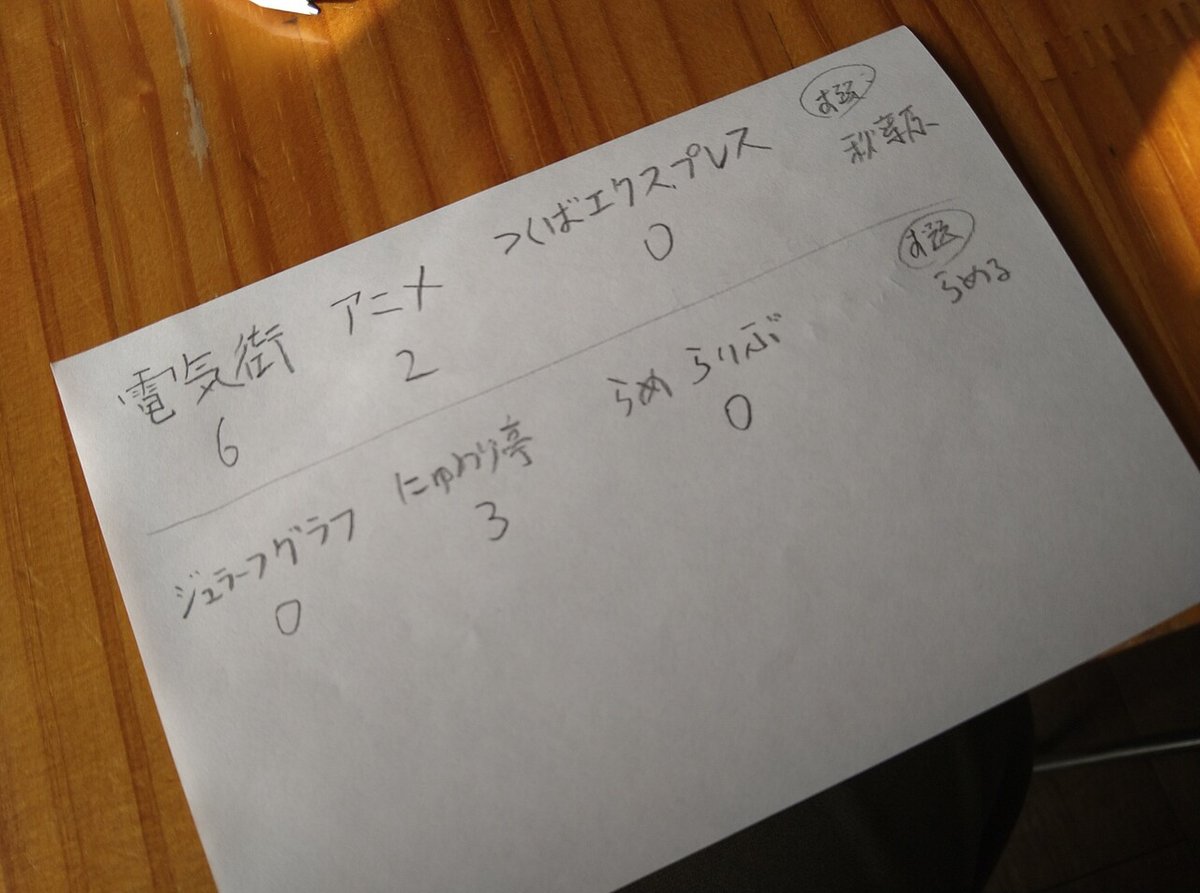 お題
秋葉原
つくばエクスプレス
0
アニメ
2
電気街
6
お題
らめる
らめ らりぶ
0
にゅわり亭
3
ジュラーフグラフ
0